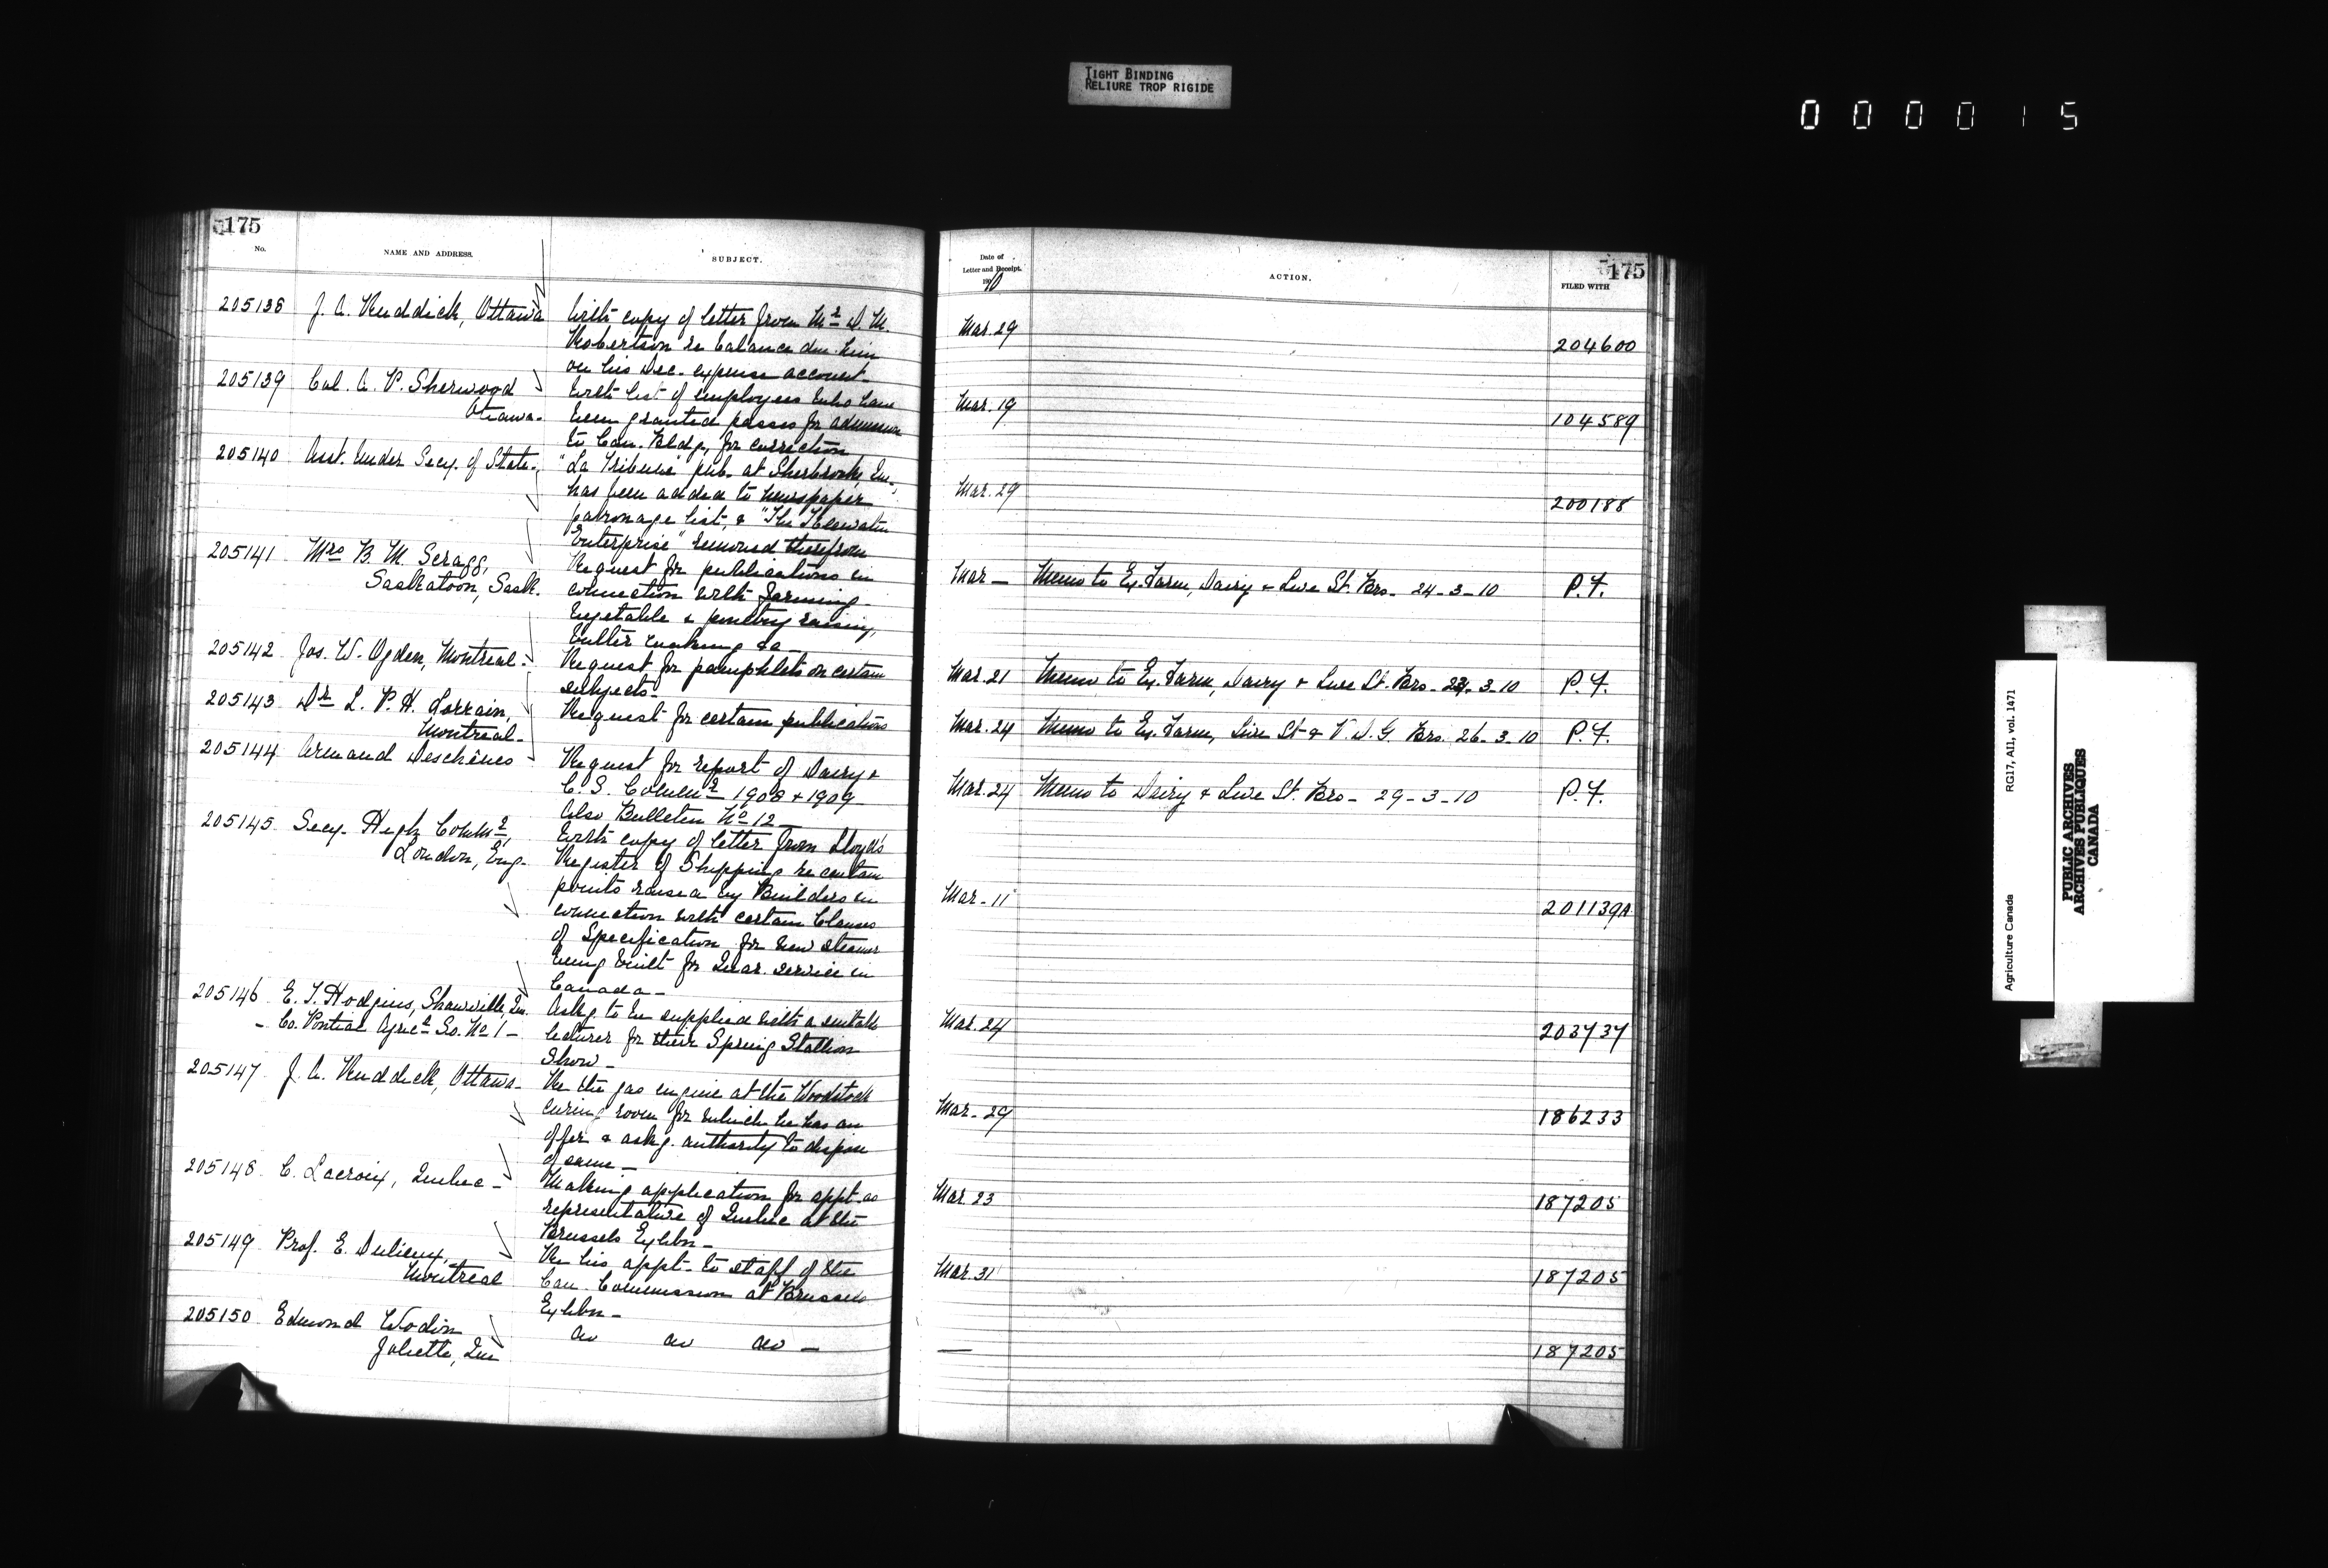 TIGHT BINDING
RELIURE TROP RIGIDE
000015
175
No.
NAME AND ADDRESS.
SUBJECT.
205138 J. A. Ruddick, Ottawa With copy of letter from Mr D. M.
Robertson re balance due him
on his Dec. expense account.
205139 Col. A. P. Sherwood With list of employees who have
Ottawa. been granted passes for admission
to Can. Bldg, for correction
205140 Asst. Under Secy. of State. "La Tribune" pub. at Sherbrooke, Que.,
has been added to newspaper
patronage list, & "The Keewatin
Enterprise" removed therefrom
205141 Mrs B. M. Scragg, Request for publications in
Saskatoon, Sask. connection with farming
vegetable & poultry raising,
butter making &c
205142 Jas. W. Ogden, Montreal. Request for pamphlets on certain
subjects.
205143 Dr L. P. H. Lorrain, Request for certain publications
Montreal.
205144 Armand Deschênes Request for report of Dairy &
C. S. Commr 1908 & 1909
Also Bulletin No 12
205145 Secy. High Commr, With copy of letter from Lloyd's
London, Eng. Register of Shipping re certain
points raised by Builders in
connection with certain Clauses
of Specification for new steamer
being built for Quar. service in
Canada
205146 E. T. Hodgins, Shawville, Que. Askg. to be supplied with a suitable
Co. Pontiac Agricl So. No 1 - lecturer for their Spring Stallion
Show
205147 J. A. Ruddick, Ottawa. Re the gas engine at the Woodstock
curing room for which he has an
offer & askg. authority to dispose
of same
205148 C. Lacroix, Quebec - Making application for appt. as
representative of Quebec at the
Brussels Exhbn
205149 Prof. E. Dulieux, Re his appt. to staff of the
Montreal Can. Commission at Brussels
Exhbn
205150 Edmond Wodin do do do -
Joliette, Que
175
Date of
Letter and Receipt.
1910
ACTION.
FILED WITH
Mar. 29 204600
Mar. 19 104589
Mar. 29 200188
Mar — Memo to Ex. Farm, Dairy & Live St. Brs. 24-3-10 P.F.
Mar. 21 Memo to Ex. Farm, Dairy & Live St. Brs. 24-3-10 P.F.
Mar. 24 Memo to Ex. Farm, Live St & V. D. G. Brs. 26-3-10 P.F.
Mar. 24 Memo to Dairy & Live St. Brs - 29-3-10 P.F.
Mar. 11 201139A
Mar. 24 203737
Mar. 29 186233
Mar. 23 187205
Mar. 31 187205
— 187205
Agriculture Canada RG17, A11, vol. 1471
PUBLIC ARCHIVES
ARCHIVES PUBLIQUES
CANADA